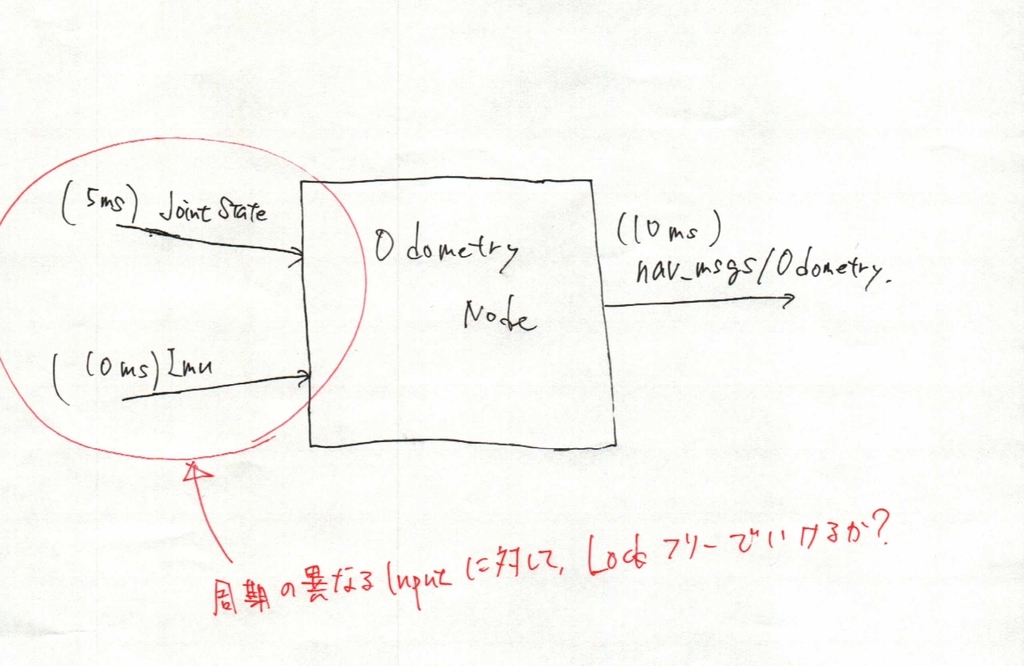 (5ms) Joint State
Odometry
Node
(10ms)
nav_msgs/Odometry.
(10ms) Imu
周期の異なるInputに対して、Lockフリーでいけるか?